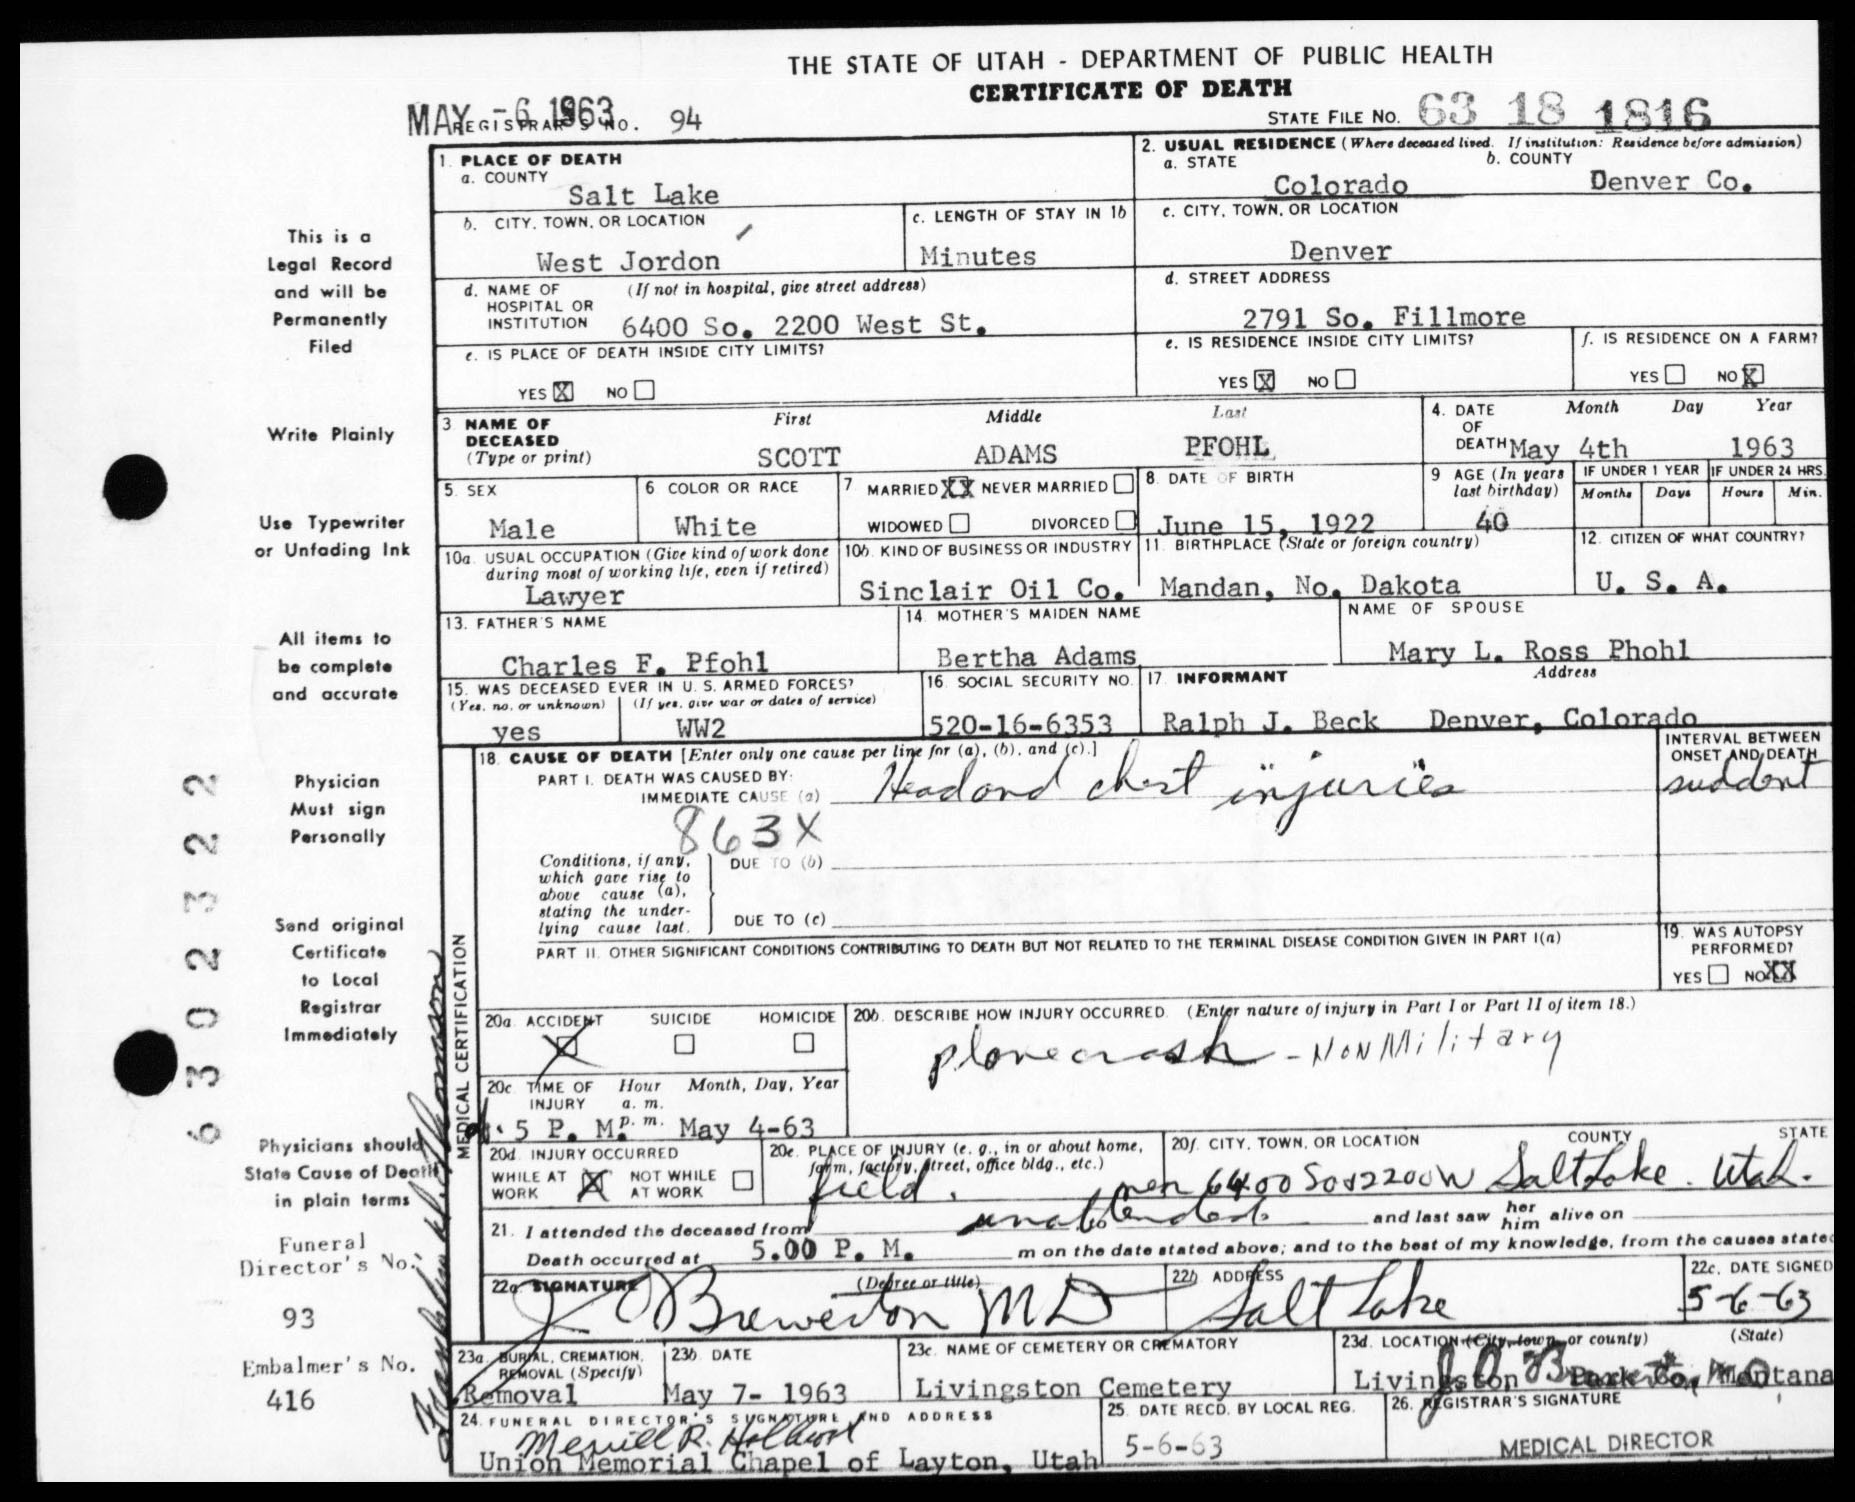 THE STATE OF UTAH - DEPARTMENT OF PUBLIC HEALTH
CERTIFICATE OF DEATH
MAY -6 1963
REGISTRAR'S NO. 94
STATE FILE NO. 63 18 1816
1. PLACE OF DEATH
a. COUNTY
Salt Lake
2. USUAL RESIDENCE (Where deceased lived. If institution: Residence before admission)
a. STATE b. COUNTY
Colorado Denver Co.
b. CITY, TOWN, OR LOCATION
West Jordon
c. LENGTH OF STAY IN 1b
Minutes
c. CITY, TOWN, OR LOCATION
Denver
d. NAME OF HOSPITAL OR INSTITUTION (If not in hospital, give street address)
6400 So. 2200 West St.
d. STREET ADDRESS
2791 So. Fillmore
e. IS PLACE OF DEATH INSIDE CITY LIMITS?
YES X NO
e. IS RESIDENCE INSIDE CITY LIMITS?
YES X NO
f. IS RESIDENCE ON A FARM?
YES NO X
3 NAME OF DECEASED (Type or print)
First Middle Last
SCOTT ADAMS PFOHL
4. DATE OF DEATH
Month Day Year
May 4th 1963
5. SEX
Male
6 COLOR OR RACE
White
7 MARRIED XX NEVER MARRIED
WIDOWED DIVORCED
8. DATE OF BIRTH
June 15, 1922
9 AGE (In years last birthday)
40
IF UNDER 1 YEAR
Months Days
IF UNDER 24 HRS.
Hours Min.
10a. USUAL OCCUPATION (Give kind of work done during most of working life, even if retired)
Lawyer
10b. KIND OF BUSINESS OR INDUSTRY
Sinclair Oil Co.
11. BIRTHPLACE (State or foreign country)
Mandan, No. Dakota
12. CITIZEN OF WHAT COUNTRY?
U. S. A.
13. FATHER'S NAME
Charles F. Pfohl
14. MOTHER'S MAIDEN NAME
Bertha Adams
NAME OF SPOUSE
Mary L. Ross Phohl
15. WAS DECEASED EVER IN U. S. ARMED FORCES?
(Yes, no, or unknown) (If yes, give war or dates of service)
yes WW2
16. SOCIAL SECURITY NO.
520-16-6353
17. INFORMANT Address
Ralph J. Beck Denver, Colorado
18. CAUSE OF DEATH [Enter only one cause per line for (a), (b), and (c).]
PART I. DEATH WAS CAUSED BY:
IMMEDIATE CAUSE (a) Head and chest injuries
863X
INTERVAL BETWEEN ONSET AND DEATH
Conditions, if any, which gave rise to above cause (a), stating the underlying cause last.
DUE TO (b)
DUE TO (c)
PART II. OTHER SIGNIFICANT CONDITIONS CONTRIBUTING TO DEATH BUT NOT RELATED TO THE TERMINAL DISEASE CONDITION GIVEN IN PART I(a)
19. WAS AUTOPSY PERFORMED?
YES NO XX
MEDICAL CERTIFICATION
20a. ACCIDENT SUICIDE HOMICIDE
X
20b. DESCRIBE HOW INJURY OCCURRED. (Enter nature of injury in Part I or Part II of item 18.)
plane crash - Non Military
20c. TIME OF INJURY Hour Month, Day, Year
a. m.
p. m.
5 P. M. May 4-63
20d. INJURY OCCURRED
WHILE AT WORK X NOT WHILE AT WORK
20e. PLACE OF INJURY (e. g., in or about home, farm, factory, street, office bldg., etc.)
field.
20f. CITY, TOWN, OR LOCATION COUNTY STATE
6400 So & 2200 W Salt Lake. Utah.
21. I attended the deceased from unattended to and last saw her him alive on
Death occurred at 5.00 P. M. m on the date stated above; and to the best of my knowledge, from the causes stated
22a. SIGNATURE (Degree or title)
Brewerton MD
22b. ADDRESS
Salt Lake
22c. DATE SIGNED
5-6-63
23a. BURIAL, CREMATION, REMOVAL (Specify)
Removal
23b. DATE
May 7- 1963
23c. NAME OF CEMETERY OR CREMATORY
Livingston Cemetery
23d. LOCATION (City, town, or county) (State)
Livingston Park Co, Montana
24. FUNERAL DIRECTOR'S SIGNATURE AND ADDRESS
Merrill R.
Union Memorial Chapel of Layton, Utah
25. DATE RECD. BY LOCAL REG.
5-6-63
26. REGISTRAR'S SIGNATURE
MEDICAL DIRECTOR
This is a
Legal Record
and will be
Permanently
Filed
Write Plainly
Use Typewriter
or Unfading Ink
All items to
be complete
and accurate
Physician
Must sign
Personally
Send original
Certificate
to Local
Registrar
Immediately
Physicians should
State Cause of Death
in plain terms
Funeral
Director's No.
93
Embalmer's No.
416
63022322